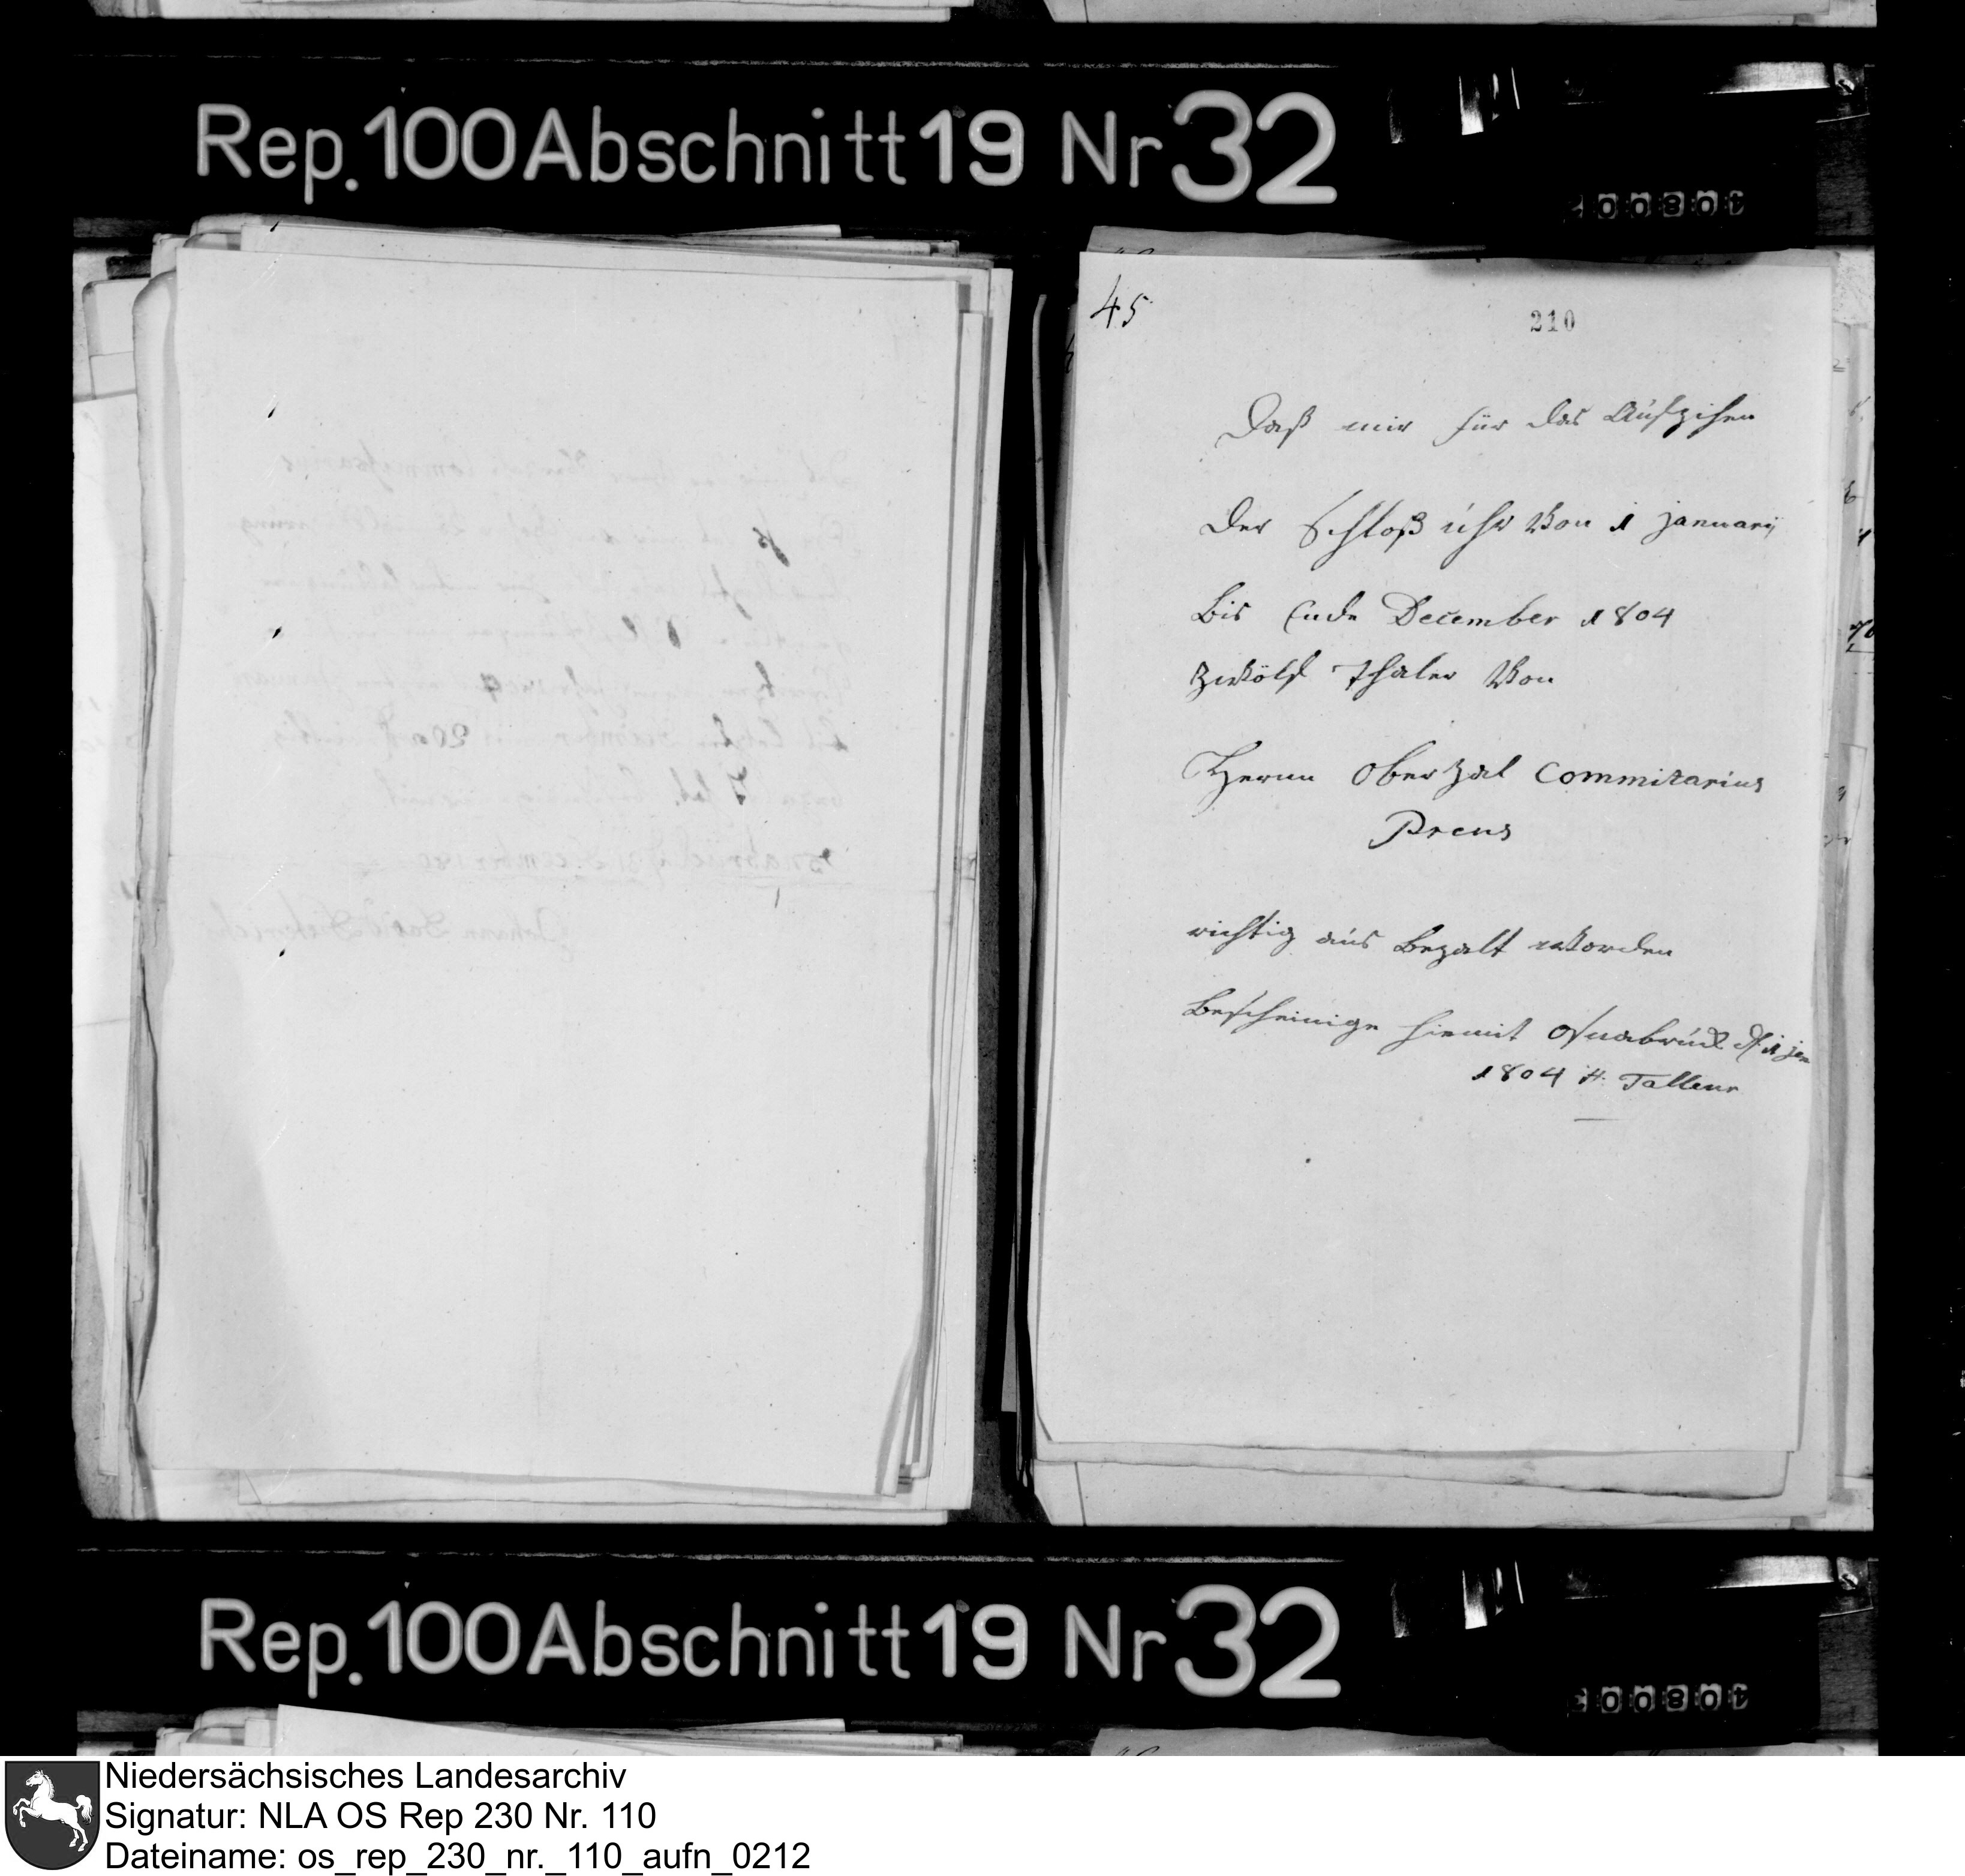 Rep. 100 Abschnitt 19 Nr 32
45
210
Daß mir für das Aufzihen
der Schloß uhr Von 1 januarij
Bis Ende December 1804
zwölf Thaler Von
Herrn Oberzal Commisarius
Preus
richtig aus Bezalt worden
Bescheinige hiemit Osnabrück d 1 jan
1804 H. Talleur
Rep. 100 Abschnitt 19 Nr 32
Niedersächsisches Landesarchiv
Signatur: NLA OS Rep 230 Nr. 110
Dateiname: os_rep_230_nr._110_aufn_0212